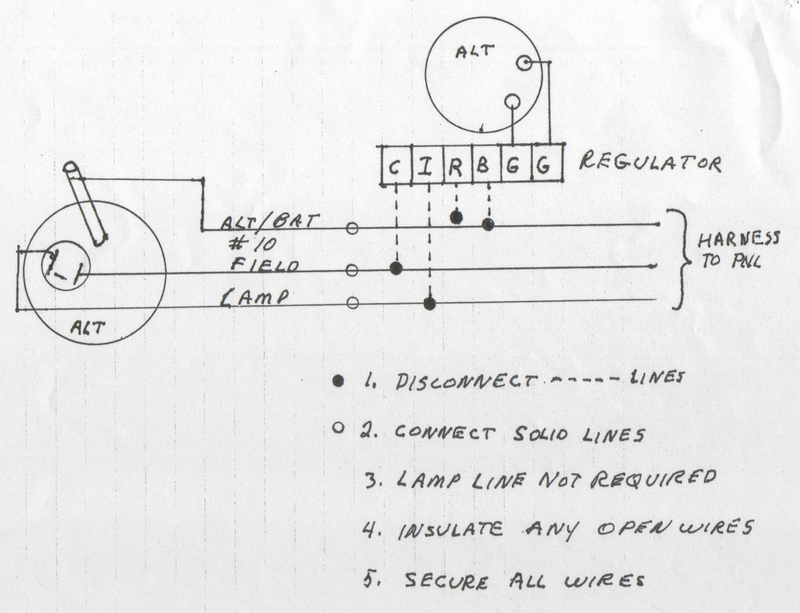 ALT
C I R B G G REGULATOR
ALT/BAT
#10
FIELD
LAMP
HARNESS
TO PNL
ALT
1. DISCONNECT ----- LINES
2. CONNECT SOLID LINES
3. LAMP LINE NOT REQUIRED
4. INSULATE ANY OPEN WIRES
5. SECURE ALL WIRES